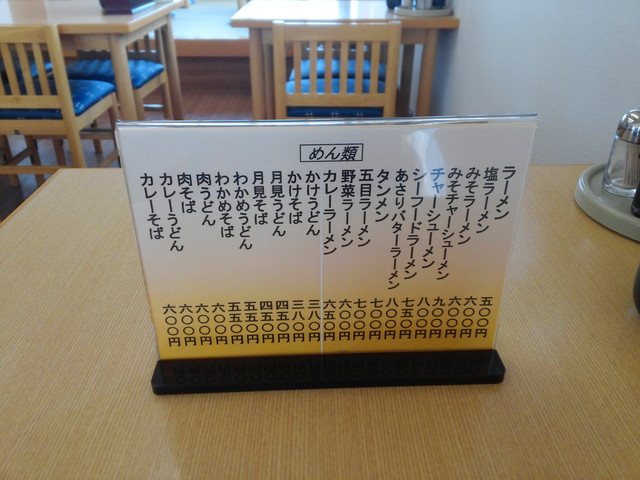 めん類
ラーメン 五〇〇円
塩ラーメン 六〇〇円
みそラーメン 六〇〇円
みそチャーシューメン 九〇〇円
チャーシューメン 八〇〇円
シーフードラーメン 七五〇円
あさりバターラーメン 八〇〇円
タンメン 七〇〇円
五目ラーメン 七〇〇円
野菜ラーメン 六〇〇円
カレーラーメン 六五〇円
かけうどん 三八〇円
かけそば 三八〇円
月見うどん 四五〇円
月見そば 四五〇円
わかめうどん 五五〇円
わかめそば 五五〇円
肉うどん 六〇〇円
肉そば 六〇〇円
カレーうどん 六〇〇円
カレーそば 六〇〇円